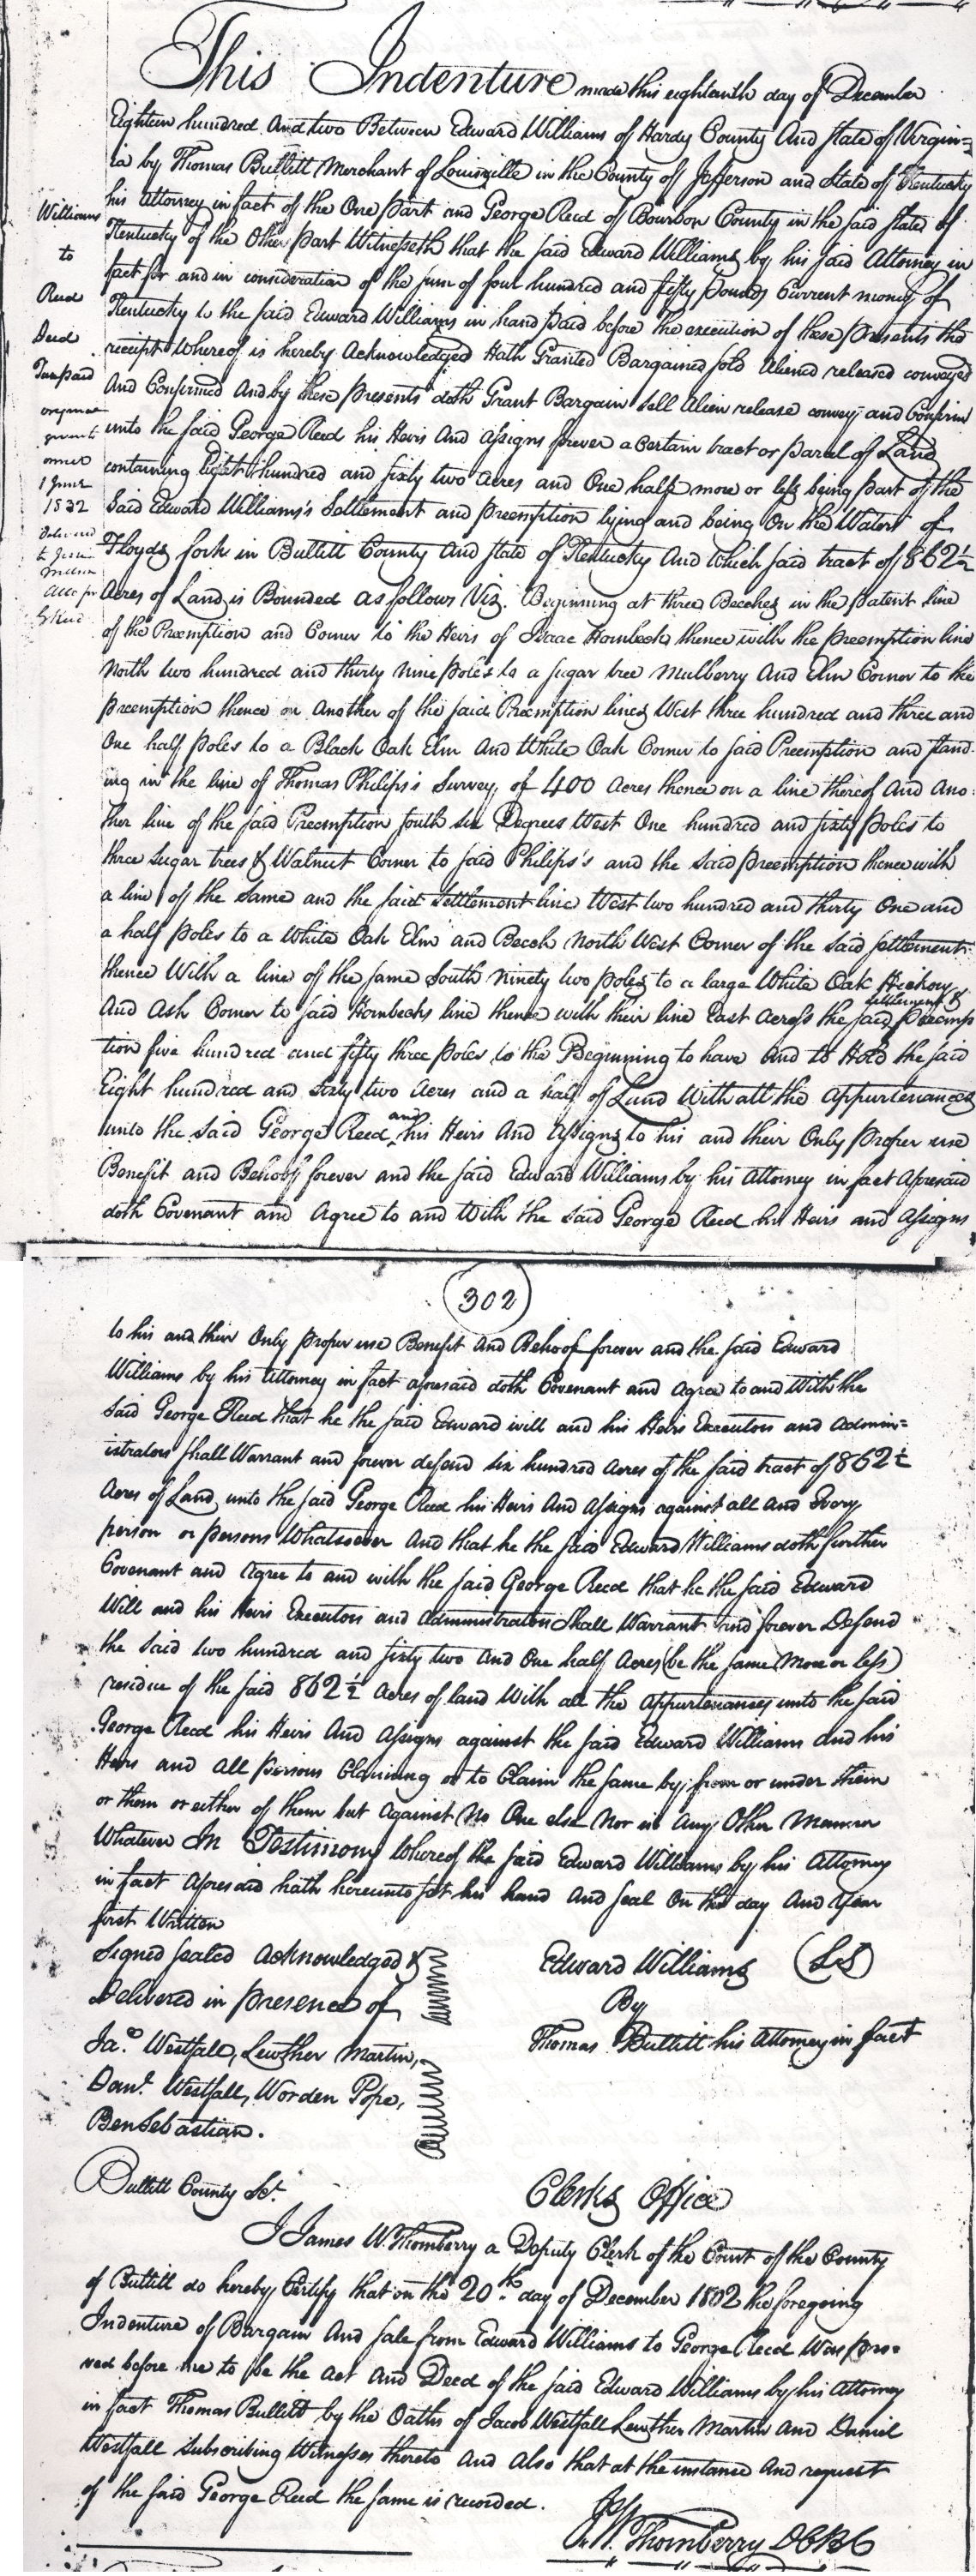 This Indenture made this eighteenth day of December
Eighteen hundred And two Between Edward Williams of Hardy County And State of Virgin=
ia by Thomas Bullitt Merchant of Louisville in the County of Jefferson and State of Kentucky
his Attorney in fact of the One part and George Reed of Bourbon County in the said State of
Kentucky of the Other part Witnesseth that the said Edward Williams by his said Attorney in
fact for and in consideration of the sum of four hundred and fifty pounds Current money of
Kentucky to the said Edward Williams in hand paid before the execution of these presents the
receipt Whereof is hereby Acknowledged Hath Granted Bargained sold Aliened released conveyed
And Confirmed And by these presents doth Grant Bargain sell Alien release convey and Confirm
unto the said George Reed his Heirs And Assigns forever a certain tract or parcel of Land
containing Eight hundred and sixty two Acres and One half more or less being part of the
Said Edward Williams's Settlement and preemption lying and being On the Waters of
Floyds fork in Bullitt County And State of Kentucky And Which said tract of 862½
Acres of Land is Bounded as follows Viz. Beginning at three Beeches in the patent line
of the Preemption and Corner to the Heirs of Isaac Hornbeck thence with the preemption line
North two hundred and thirty nine poles to a sugar tree Mulberry And Elm Corner to the
preemption thence on Another of the said Preemption lines West three hundred and three and
One half poles to a Black Oak Elm And White Oak Corner to said Preemption and stand-
ing in the line of Thomas Philips's Survey of 400 acres thence on a line thereof And Ano=
ther line of the said Preemption South six Degrees West One hundred and sixty poles to
three Sugar trees & Walnut Corner to said Philips's and the said preemption thence with
a line of the same and the said settlement line West two hundred and thirty One and
a half poles to a White Oak Elm and Beech North West Corner of the said settlement
thence With a line of the same South Ninety two poles to a large White Oak Hickory
And Ash Corner to said Hornbecks line thence with their line East Across the said settlement & Preemp
tion five hundred and fifty three poles to the Beginning to have And to Hold the said
Eight hundred and sixty two Acres and a half of Land With all the Appurtenances
unto the said George Reed and his Heirs And Assigns to his and their Only proper use
Benefit and Behoof forever and the said Edward Williams by his Attorney in fact Aforesaid
doth Covenant and Agree to and With the said George Reed his Heirs and Assigns
Williams
to
Reed
Deed
original
1 June
1832
302
to his and their Only proper use Benefit And Behoof forever and the said Edward
Williams by his Attorney in fact aforesaid doth Covenant and Agree to and With the
Said George Reed that he the said Edward will and his Heirs Executors and Admin=
istrators shall Warrant and forever defend six hundred Acres of the said tract of 862½
Acres of Land unto the said George Reed his Heirs And Assigns against all And Every
person or persons Whatsoever And that he the said Edward Williams doth further
Covenant and Agree to and with the said George Reed that he the said Edward
Will and his Heirs Executors and Administrators Shall Warrant and forever Defend
the said two hundred and sixty two And One half Acres (be the same More or less)
residue of the said 862½ Acres of land With all the Appurtenances unto the said
George Reed his Heirs And Assigns against the said Edward Williams and his
Heirs and All persons Claiming or to Claim the same by from or under them
or them or either of them but Against No One else Nor in Any Other Manner
Whatever In Testimony Whereof the said Edward Williams by his Attorney
in fact Aforesaid hath hereunto set his hand And Seal On the day And Year
first Written
Signed sealed Acknowledged &
Delivered in presence of
Jac.o Westfall, Lewther Martin,
Dan.l Westfall, Worden Pope,
Ben Sebastian.
Edward Williams (LS)
By
Thomas Bullitt his Attorney in fact
Bullitt County Sct. Clerks Office
I James W. Thornberry a Deputy Clerk of the Court of the County
of Bullitt do hereby Certify that on the 20th day of December 1802 the foregoing
Indenture of Bargain And sale from Edward Williams to George Reed Was pro=
ved before me to be the Act And Deed of the said Edward Williams by his Attorney
in fact Thomas Bullitt by the Oaths of Jacob Westfall Lewther Martin And Daniel
Westfall Subscribing Witnesses thereto And also that at the instance And request
of the said George Reed the same is recorded.
J. W. Thornberry DCBC